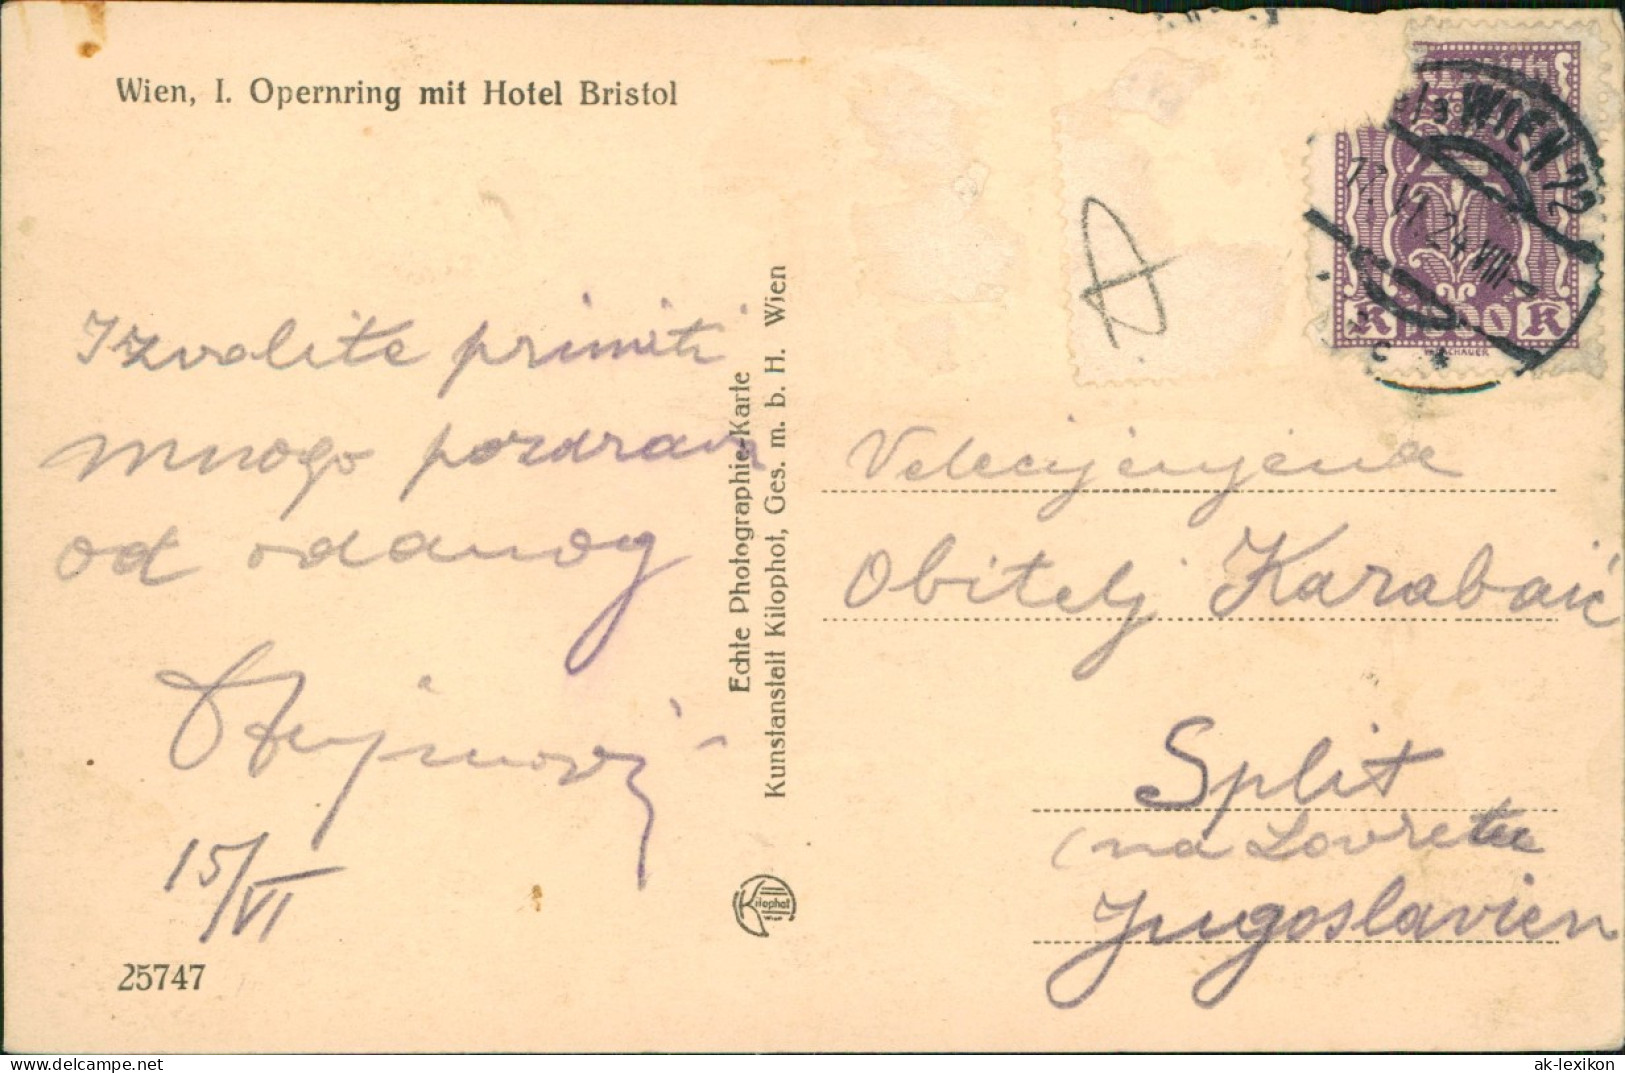 Wien, I. Opernring mit Hotel Bristol
Izvolite primiti
mnogo pozdrava
od odanog
15/VI
25747
Echte Photographie-Karte
Kunstanstalt Kilophot, Ges. m. b. H. Wien
Kilophot
WIEN 72
17.VI.24.VIII
K K
Velecijenjena
Obitelj Karabaić
Split
(na Lovretu
Jugoslavien
hippostcard.com
ak-lexikon